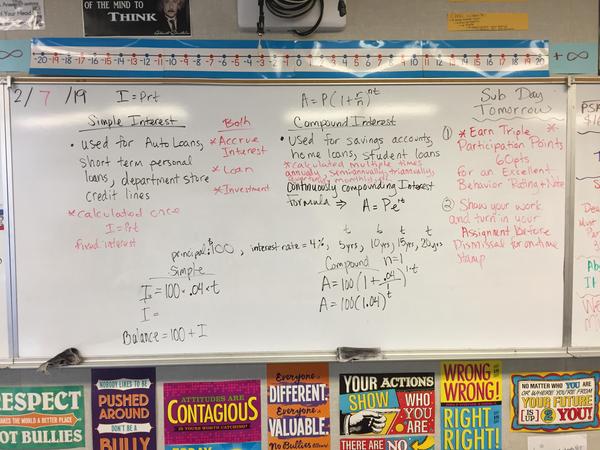 OF THE MIND TO
THINK
-20 -19 -18 -17 -16 -15 -14 -13 -12 -11 -10 -9 -8 -7 -6 -5 -4 -3 -2 -1 0 1 2 3 4 5 6 7 8 9 10 11 12 13 14 15 16 17 18 19 20
+∞
2/7/19
I = Prt
Simple Interest
• used for Auto Loans,
short term personal
loans, department store
credit lines
* calculated once
fixed interest
Both
* Accrue
Interest
* Loan
* Investment
A = P(1 + r/n)^nt
Compound Interest
• Used for savings accounts,
home loans, student loans
* calculated multiple times
annually, semiannually, triannually,
quarterly, monthly,
Continuously compounding Interest
formula ⇒ A = Pe^rt
Sub Day
Tomorrow
① * Earn Triple *
Participation Points
6 pts
for an Excellent
Behavior Rating + Note
② Show your work
and turn in your
Assignment before
Dismissal for on-time
stamp
principal: $100, interest rate = 4%, 5yrs, 10yrs, 15yrs, 20yrs
t t t t
Simple
I = 100 · .04 · t
I =
Balance = 100 + I
Compound n=1
A = 100(1 + .04/1)^1·t
A = 100(1.04)^t
RESPECT
MAKES THE WORLD A BETTER PLACE
NOT BULLIES
NOBODY LIKES TO BE
PUSHED
AROUND
DON'T BE A
BULLY
ATTITUDES ARE
CONTAGIOUS
IS YOURS WORTH CATCHING?
Everyone is
DIFFERENT.
Everyone is
VALUABLE.
No Bullies Allowed!
YOUR ACTIONS
SHOW WHO
YOU ARE
THERE ARE NO
WRONG IS
WRONG!
RIGHT IS
RIGHT!
NO MATTER WHO YOU ARE
OR WHERE YOU'RE FROM
YOUR FUTURE
IS UP 2 YOU!